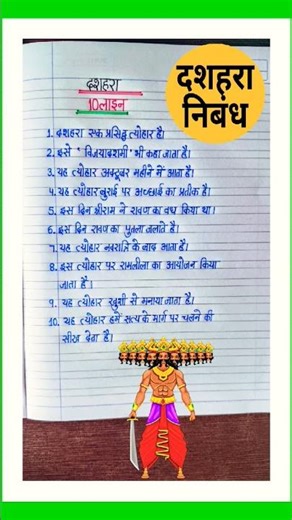 दशहरा
10लाइन
दशहरा
निबंध
1. दशहरा एक प्रसिद्ध त्योहार है।
2. इसे "विजयादशमी" भी कहा जाता है।
3. यह त्योहार अक्टूबर महीने में आता है।
4. यह त्योहार बुराई पर अच्छाई का प्रतीक है।
5. इस दिन श्रीराम ने रावण का वध किया था।
6. इस दिन रावण का पुतला जलाते है।
7. यह त्योहार नवरात्रि के बाद आता है।
8. इस त्योहार पर रामलीला का आयोजन किया
जाता है।
9. यह त्योहार खुशी से मनाया जाता है।
10. यह त्योहार हमें सत्य के मार्ग पर चलने की
सीख देता है।